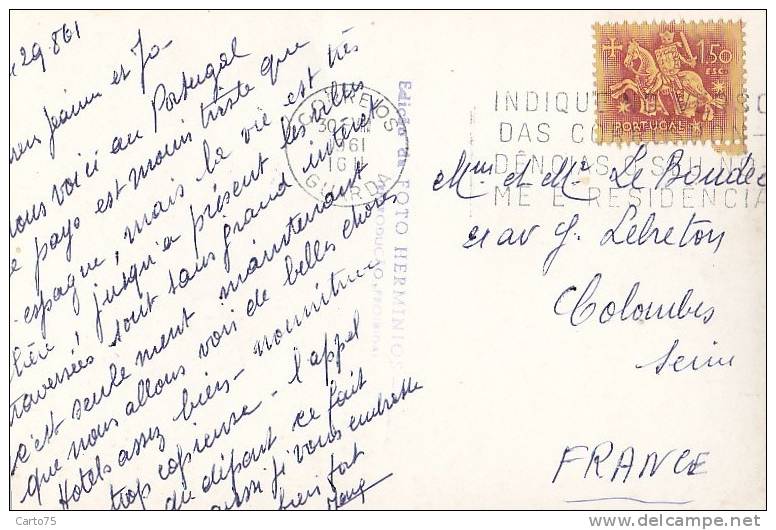 29.8.61
Jeanine et Jo-
nous voici au Portugal
le pays est moins triste que
espagne, mais la vie est très
chère! jusqu'a présent les villes
traversées sont sans grand intérêt
c'est seulement maintenant
que nous allons voir de belles choses
Hotels assez bien - nourriture
trop copieuse - l'appel
du départ ce fait
aussi je vous embrasse
bien fort
Edição da FOTO HERMINIOS
REPRODUÇÃO PROIBIDA
CORREIOS
30-
961
GUARDA
1$50
ESC.
PORTUGAL
INDIQUE
DAS CO
DÊNCIAS
ME E RESIDÊNCIA
Mme et Mr Le Boudec
21 av G. Lebreton
Colombes
Seine
FRANCE
Carto75
delcampe.net